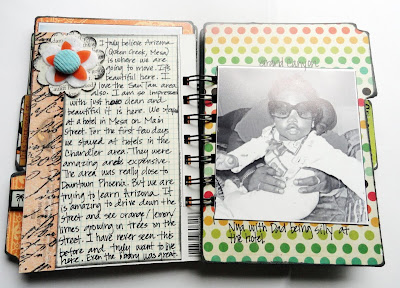 I truly believe Arizona
(Queen Creek, Mesa)
is where we are
going to move. It's
beautiful here. I
love the San Tan area
also. I am so impressed
with just how clean and
beautiful it is here. We stayed
at a hotel in Mesa on Main
Street. For the first few days
we stayed at hotels in the
Chandler area. They were
amazing and expensive.
The area was really close to
Downtown Phoenix. But we are
trying to learn Arizona. It
is amazing to drive down the
street and see orange/lemon/
limes growing in trees on the
street. I have never seen this
before and truly want to live
here. Even the library was great.
Niya with Dad being silly at
the hotel